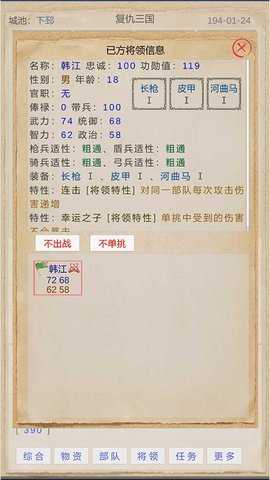 城池：下邳 复仇三国 194-01-24
己方将领信息
名称：韩江 忠诚：100 功勋值：119
性别：男 年龄：18
官职：无
俸禄：0 带兵：100
长枪 皮甲 河曲马
I I I
武力：74 统御：68
智力：62 政治：58
枪兵适性：粗通、盾兵适性：粗通
骑兵适性：粗通、弓兵适性：粗通
装备：长枪 I 、皮甲 I 、河曲马 I
特性：连击 [将领特性] 对同一部队每次攻击伤
害递增
特性：幸运之子 [将领特性] 单挑中受到的伤害
不会暴击
不出战 不单挑
韩江
72 68
62 58
[ 390 ]
综合 物资 部队 将领 任务 更多